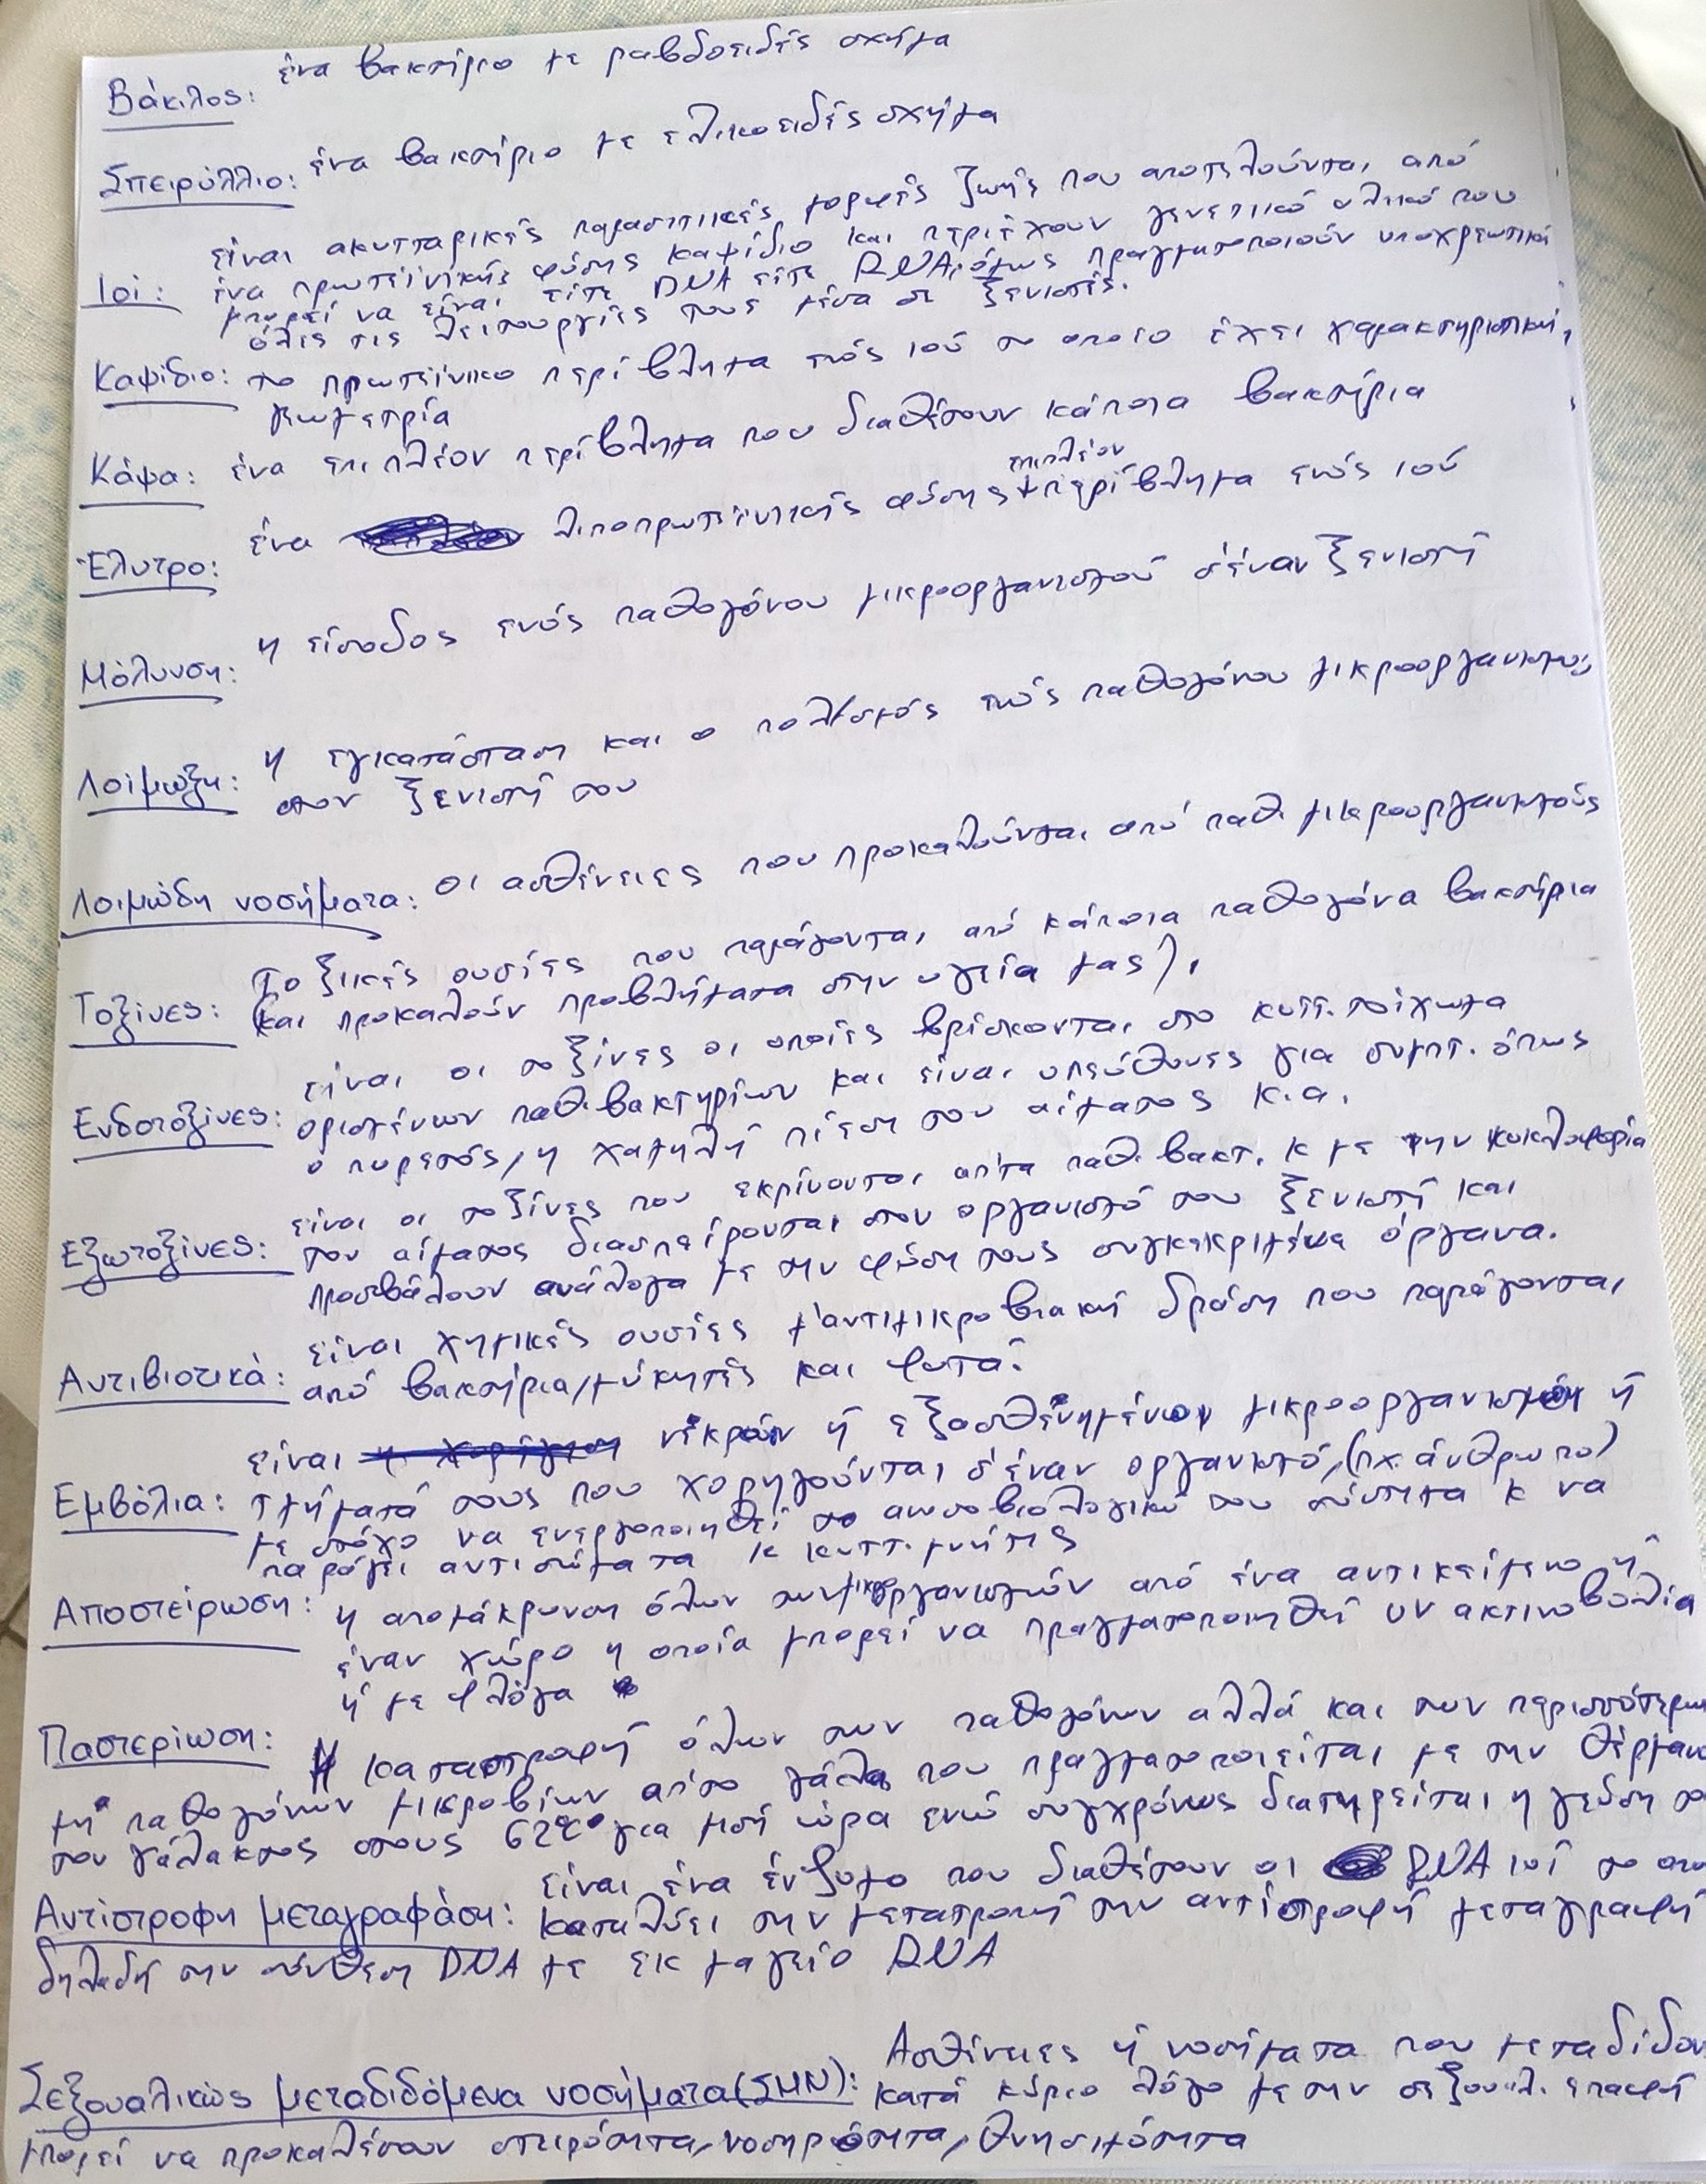 Βάκιλος: ένα βακτήριο με ραβδοειδές σχήμα
Σπειρύλλιο: ένα βακτήριο με ελικοειδές σχήμα
Ιοί: είναι ακυτταρικές παρασιτικές μορφές ζωής που αποτελούνται από
ένα πρωτεϊνικής φύσης καψίδιο και περιέχουν γενετικό υλικό που
μπορεί να είναι είτε DNA είτε RNA, όμως πραγματοποιούν υποχρεωτικά
όλες τις λειτουργίες τους μέσα σε ξενιστές.
Καψίδιο: το πρωτεϊνικο περίβλημα ενός ιού το οποίο έχει χαρακτηριστική
γεωμετρία
Κάψα: ένα επιπλέον περίβλημα που διαθέτουν κάποια βακτήρια
επιπλέον
Έλυτρο: ένα λιποπρωτεϊνικής φύσης περίβλημα ενός ιού
Μόλυνση: η είσοδος ενός παθογόνου μικροοργανισμού σ'έναν ξενιστή
Λοίμωξη: η εγκατάσταση και ο πολ/σμός ενός παθογόνου μικροοργανισμού
στον ξενιστή του
Λοιμώδη νοσήματα: οι ασθένειες που προκαλούνται από παθ. μικροοργανισμούς
Τοξίνες: Τοξικές ουσίες που παράγονται από κάποια παθογόνα βακτήρια
(και προκαλούν προβλήματα στην υγεία μας).
Ενδοτοξίνες: είναι οι τοξίνες οι οποίες βρίσκονται στο κυττ. τοίχωμα
ορισμένων παθ. βακτηρίων και είναι υπεύθυνες για συμπτ. όπως
ο πυρετός, η χαμηλή πίεση του αίματος κ.α.
Εξωτοξίνες: είναι οι τοξίνες που εκρίνονται απ'τα παθ. βακτ. κ με την κυκλοφορία
του αίματος διασπείρονται στον οργανισμό του ξενιστή και
προσβάλουν ανάλογα με την φύση τους συγκεκριμένα όργανα.
Αντιβιοτικά: είναι χημικές ουσίες μ'αντιμικροβιακή δράση που παράγονται
από βακτήρια, μύκητες και φυτά.
Εμβόλια: είναι νεκροί ή εξασθενημένοι μικροοργανισμοί ή
τμήματά τους που χορηγούνται σ'έναν οργανισμό, (πχ. άνθρωπο)
με στόχο να ενεργοποιηθεί το ανοσοβιολογικό του σύστημα κ να
παράγει αντισώματα κ κυττ. μνήμης
Αποστείρωση: η απομάκρυνση όλων των μικροοργανισμών από ένα αντικείμενο ή
έναν χώρο η οποία μπορεί να πραγματοποιηθεί UV ακτινοβολία
ή με φλόγα
Παστερίωση: Η καταστροφή όλων των παθογόνων αλλά και των περισσότερων
μη παθογόνων μικροβίων απ'το γάλα που πραγματοποιείται με την θέρμαν
του γάλακτος στους 62°C για μισή ώρα ενώ συγχρόνως διατηρείται η γεύση το
Αντίστροφη μεταγραφάση: είναι ένα ένζυμο που διαθέτουν οι RNA ιοί το οπο
καταλύει την μετατροπή την αντίστροφη μεταγραφή
δηλαδή την σύνθεση DNA με εκμαγείο RNA
Σεξουαλικώς μεταδιδόμενα νοσήματα (ΣΜΝ): Ασθένειες ή νοσήματα που μεταδίδον
κατά κύριο λόγο με την σεξουαλ. επαφή
μπορεί να προκαλέσουν στειρότητα, νοσηρότητα, θνησιμότητα